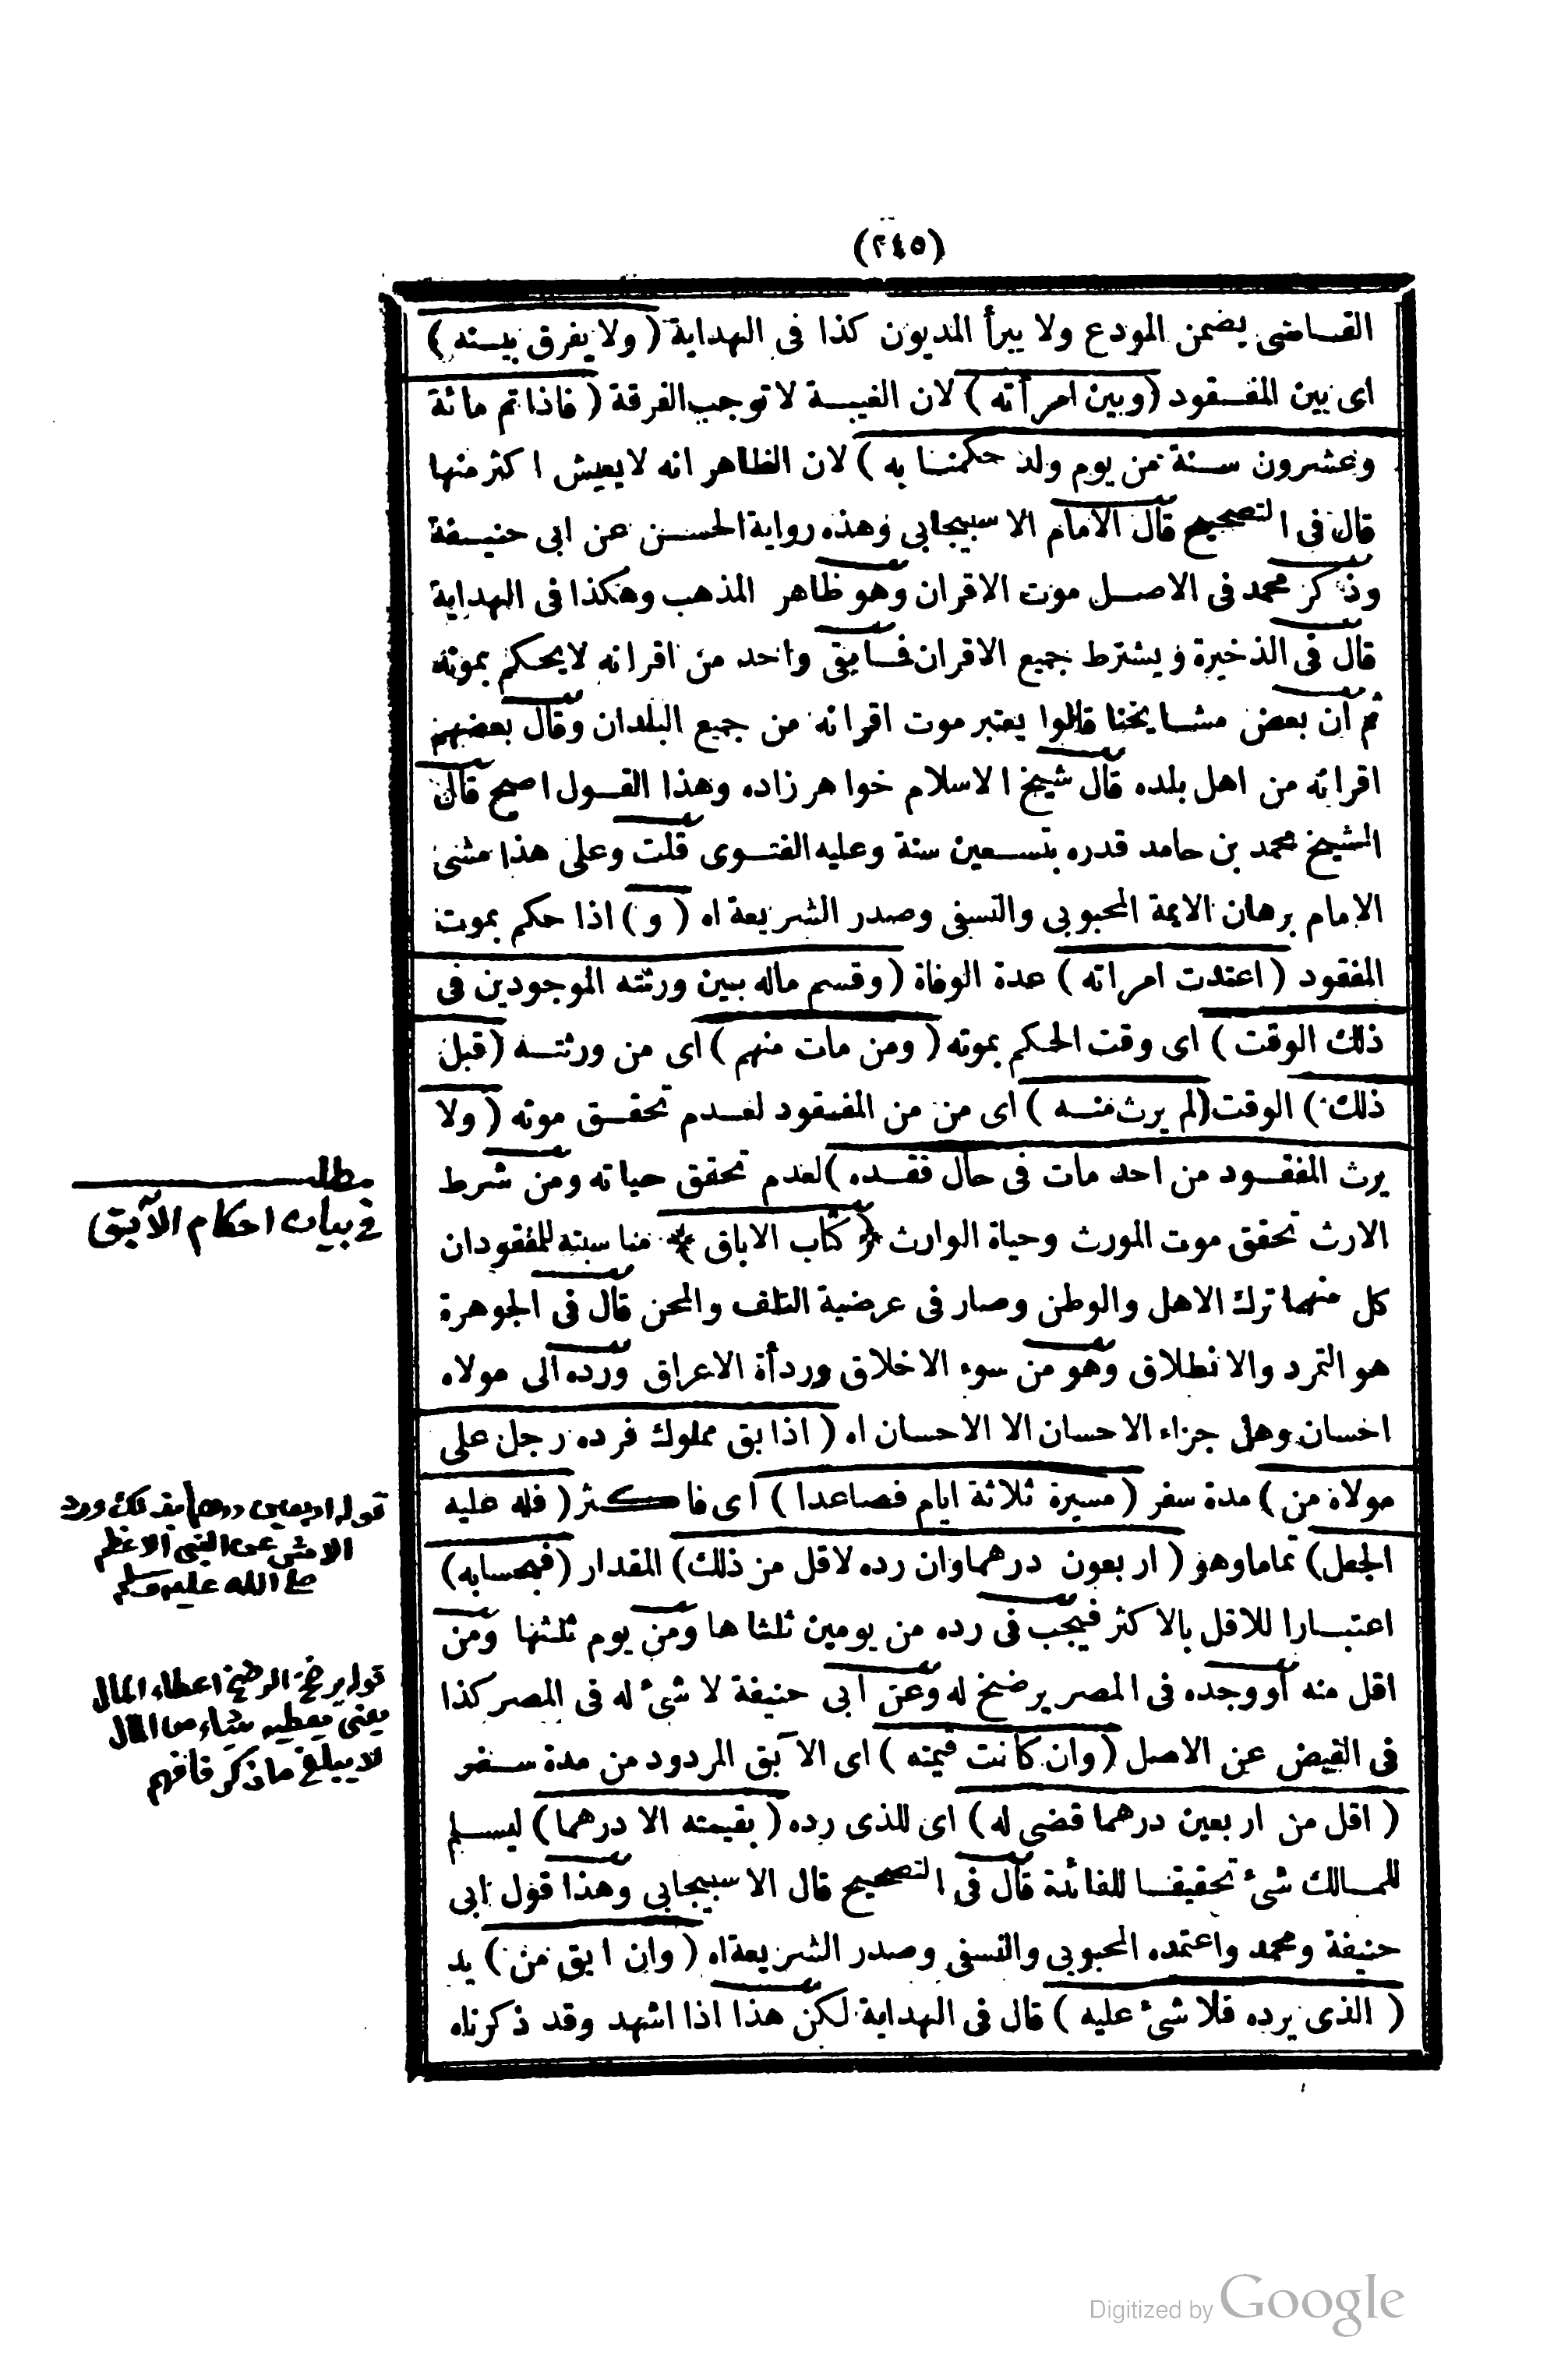 (٢٤٥)
القـاضى يضمن المودع ولا يبرأ المديون كذا فى الهداية ( ولا يفرق بينه )
اى بين المفقود ( وبين امرأته ) لان الغيبة لا توجب الفرقة ( فاذا تم مائة
وعشرون سنة من يوم ولد حكمنا به ) لان الظاهر انه لا يعيش اكثر منها
قال فى التصحيح قال الامام الاسبيجابى وهذه رواية الحسن عن ابى حنيفة
وذكر محمد فى الاصل موت الاقران وهو ظاهر المذهب وهكذا فى الهداية
قال فى الذخيرة ويشترط جميع الاقران فما بقى واحد من اقرانه لا يحكم بموته
ثم ان بعض مشايخنا قالوا يعتبر موت اقرانه من جميع البلدان وقال بعضهم
اقرانه من اهل بلده قال شيخ الاسلام خواهر زاده وهذا القول اصح قال
الشيخ محمد بن حامد قدره بتسعين سنة وعليه الفتوى قلت وعلى هذا مشى
الامام برهان الايمة المحبوبى والنسفى وصدر الشريعة اه ( و ) اذا حكم بموت
المفقود ( اعتدت امراته ) عدة الوفاة ( وقسم ماله بين ورثته الموجودين فى
ذلك الوقت ) اى وقت الحكم بموته ( ومن مات منهم ) اى من ورثته ( قبل
ذلك ) الوقت ( لم يرث منه ) اى من من المفقود لعدم تحقق موته ( ولا
يرث المفقود من احد مات فى حال فقده ) لعدم تحقق حياته ومن شرط
الارث تحقق موت المورث وحياة الوارث ﴿ كتاب الاباق ﴾ مناسبته للمفقود ان
كل منهما ترك الاهل والوطن وصار فى عرضية التلف والمحن قال فى الجوهرة
هو التمرد والانطلاق وهو من سوء الاخلاق وردأة الاعراق ورده الى مولاه
احسان وهل جزاء الاحسان الا الاحسان اه ( اذا بق مملوك فرده رجل على
مولاه من ) مدة سفر ( مسيرة ثلاثة ايام فصاعدا ) اى فاكثر ( فله عليه
الجعل ) تماما وهو ( اربعون درهما وان رده لاقل من ذلك ) المقدار ( فبحسابه )
اعتبارا للاقل بالاكثر فيجب فى رده من يومين ثلثاها ومن يوم ثلثها ومن
اقل منه أو وجده فى المصر يرضخ له وعن ابى حنيفة لا شئ له فى المصر كذا
فى الفيض عن الاصل ( وان كانت قيمته ) اى الآبق المردود من مدة سفر
( اقل من اربعين درهما قضى له ) اى للذى رده ( بقيمته الا درهما ) ليسلم
للمالك شئ تحقيقا للفائدة قال فى التصحيح قال الاسبيجابى وهذا قول ابى
حنيفة ومحمد واعتمده المحبوبى والنسفى وصدر الشريعة اه ( وان ابق من ) يد
( الذى يرده فلا شئ عليه ) قال فى الهداية لكن هذا اذا اشهد وقد ذكرناه
مطلب
فى بيان احكام الآبق
قوله اربعين درهما ورد
الاعظم
صلى الله عليه وسلم
قوله يرضخ الرضخ اعطاء المال
يعنى يعطيه شياء من المال
لا يبلغ ما ذكر فافهم
Digitized by Google